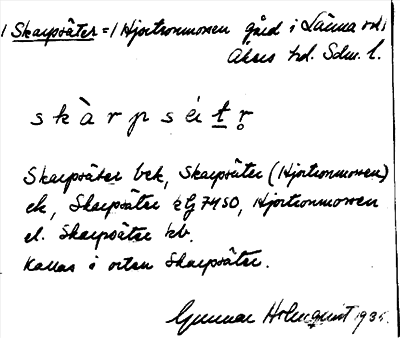 / Skarpsäter = / Hjortronmossen gård i Länna sn i
Åkers hd. Sdm. l.
s k à r p s é t r
Skarpsäter bek, Skarpsäter (Hjortronmossen)
ek, Skarpsäter 7450, Hjortronmossen
el. Skarpsäter kb.
Kallas i orten Skarpsäter.
Gunnar Holmquist 1935.